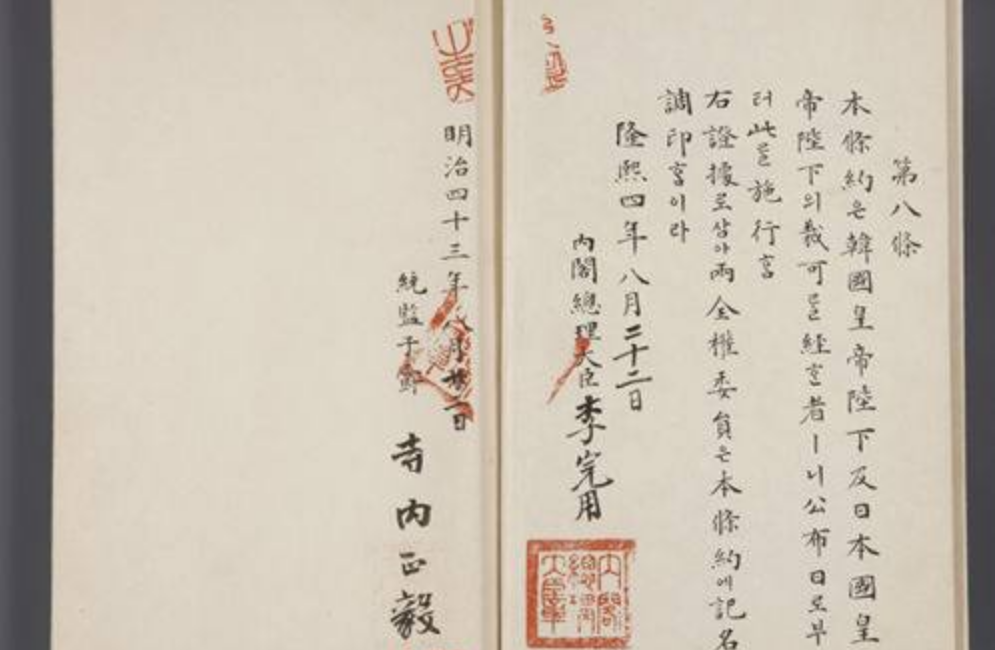 第八條
本條約은韓國皇帝陛下及日本國皇
帝陛下의裁可를經ᄒᆞᆫ者ㅣ니公布日로부
터此를施行ᄒᆞᆷ
右證據로삼아兩全權委員은本條約에記名
調印ᄒᆞᆷ이라
隆熙四年八月二十二日
內閣總理大臣李完用
內閣總理大臣章
明治四十三年八月廿二日
統監子爵 寺內正毅